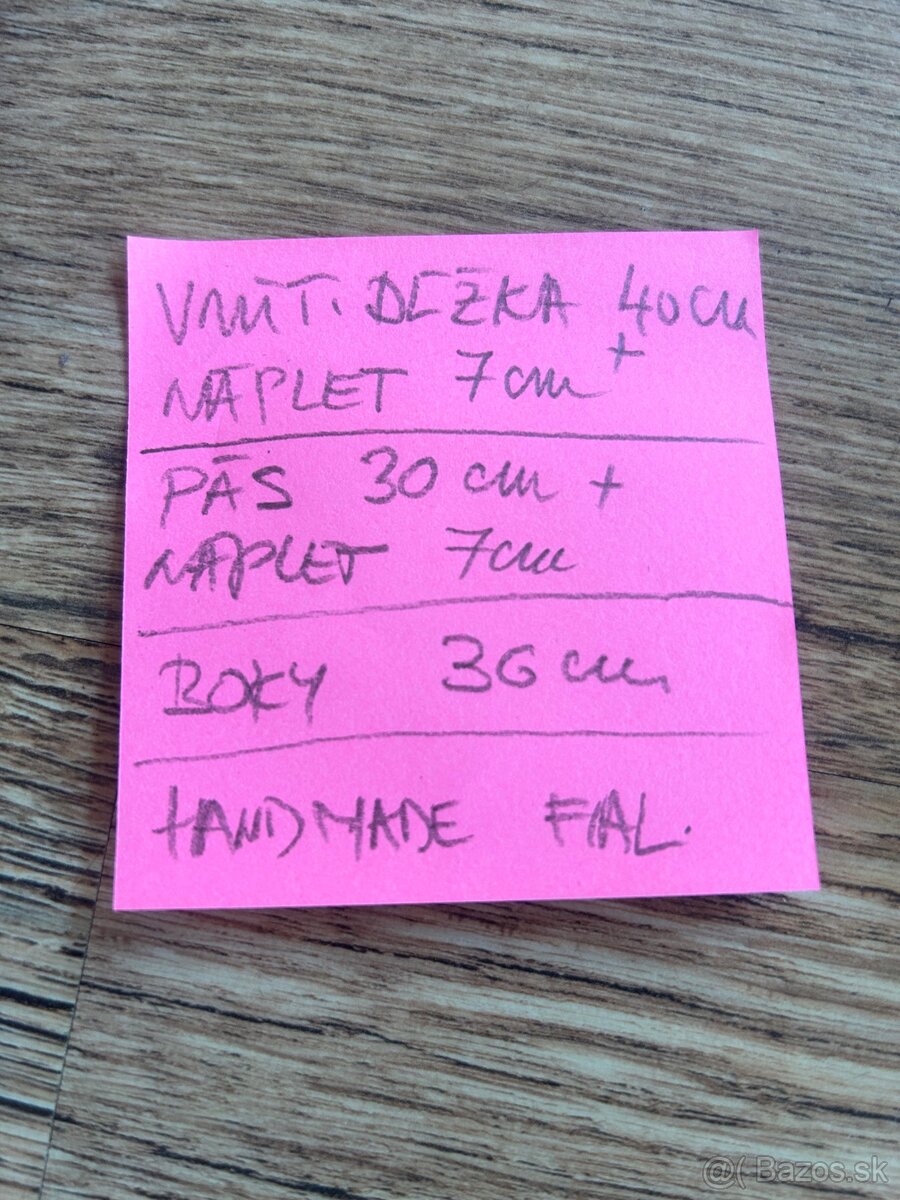 VNÚT. DĹŽKA 40 cm
+
NÁPLET 7 cm
PÁS 30 cm +
NÁPLET 7 cm
BOKY 36 cm
HANDMADE FIAL.
@( Bazos.sk